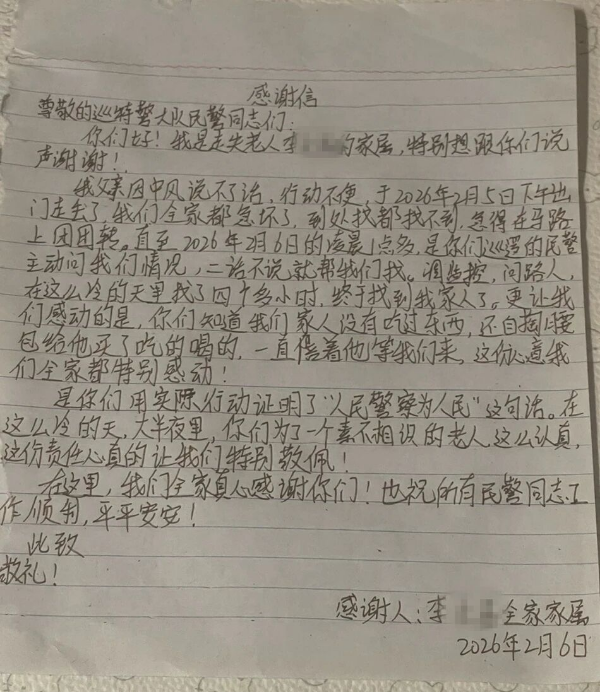 感谢信
尊敬的巡特警大队民警同志们：
你们好！我是走失老人李 的家属，特别想跟你们说
声谢谢！
我父亲因中风说不了话，行动不便，于2026年2月5日下午出
门走丢了，我们全家都急坏了，到处找都找不到，急得在马路
上团团转。直至2026年2月6日的凌晨1点多，是你们巡逻的民警
主动问我们情况，二话不说就帮我们找。调监控，问路人，
在这么冷的天里找了四个多小时，终于找到我家人了。更让我
们感动的是，你们知道我们家人没有吃过东西，还自掏腰
包给他买了吃的喝的，一直陪着他等我们来，这份心意我
们全家都特别感动！
是你们用实际行动证明了“人民警察为人民”这句话。在
这么冷的天，大半夜里，你们为了一个素不相识的老人这么认真，
这份责任心真的让我们特别敬佩！
在这里，我们全家真心感谢你们！也祝所有民警同志工
作顺利，平平安安！
此致
敬礼！
感谢人：李 全家家属
2026年2月6日